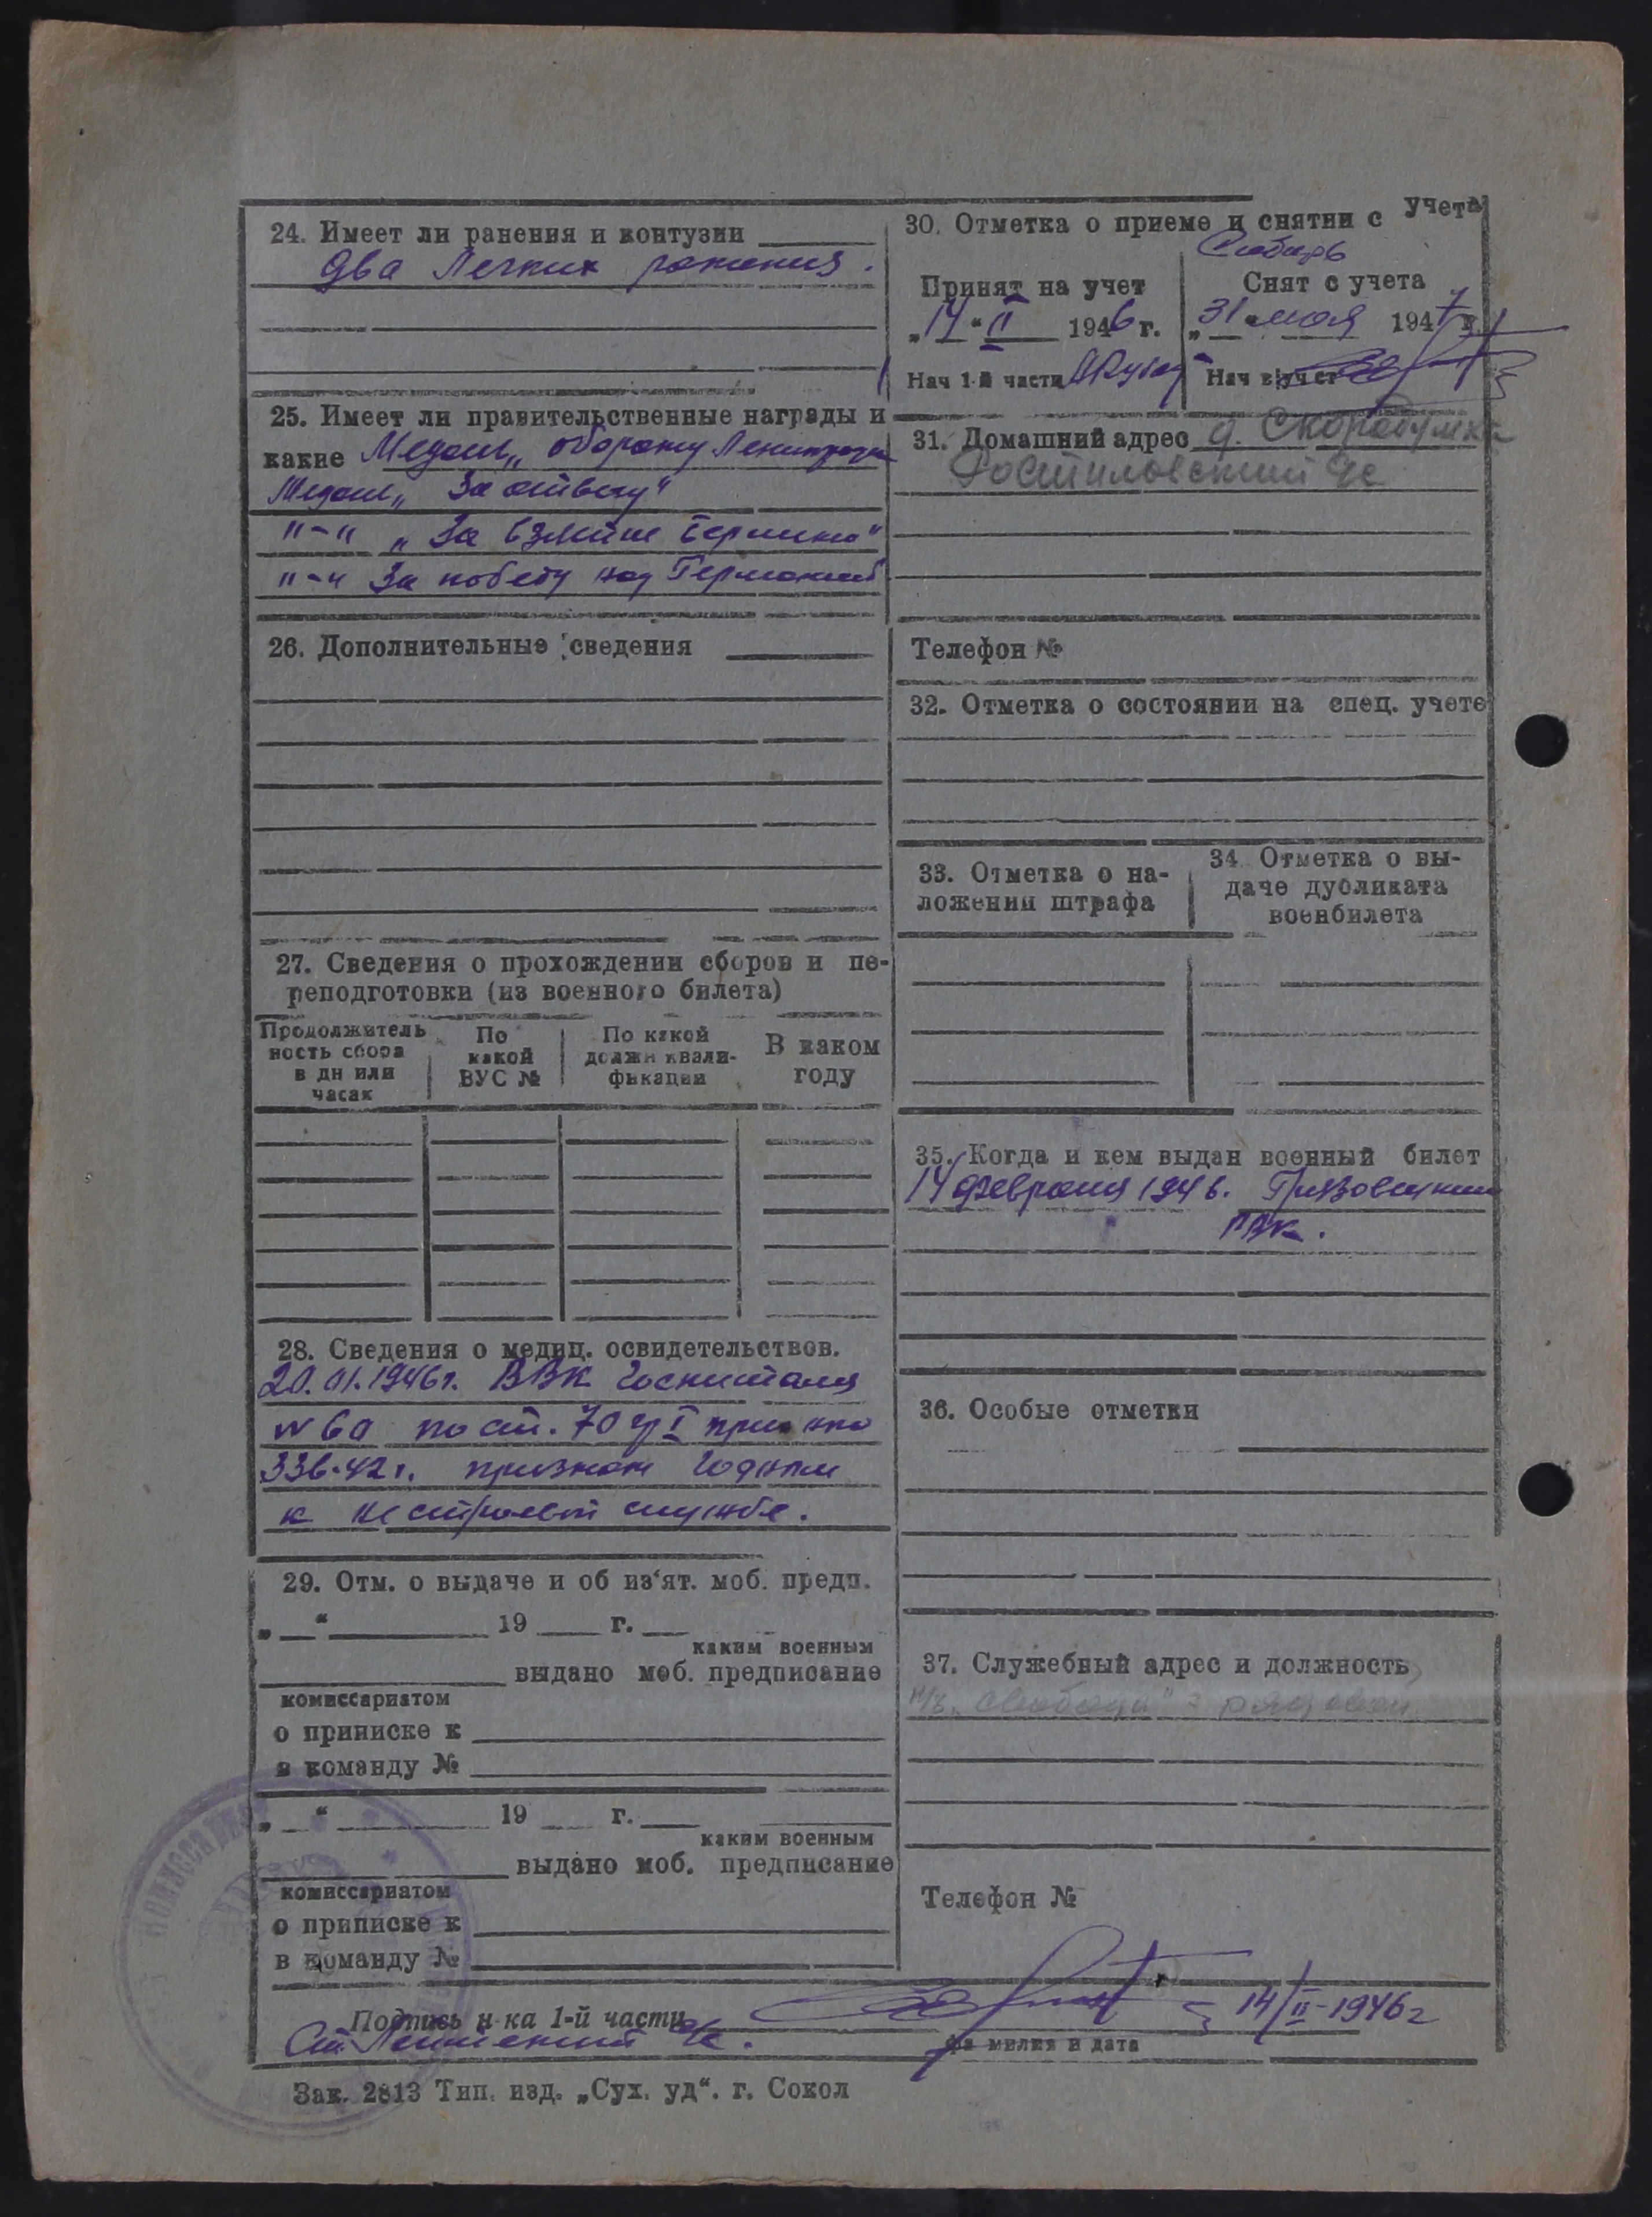 24. Имеет ли ранения и контузии
Два легких ранения.
25. Имеет ли правительственные награды и
какие Медаль „оборону Ленинграда
Медаль „За отвагу"
"-" „За взятие Берлина"
"-" За победу над Германией
26. Дополнительные сведения
27. Сведения о прохождении сборов и пе-
реподготовки (из военного билета)
Продолжитель
ность сбора
в дн или
часах
По
какой
ВУС №
По какой
должн квали-
фикации
В каком
году
28. Сведения о медиц. освидетельствов.
20.01.1946г. ВВК Госпиталя
по ст. 70 гр I
336-42г. признан годным
к нестроевой службе.
29. Отм. о выдаче и об из‘ят. моб. предп.
„ “ 19 г.
каким военным
выдано моб. предписание
комиссариатом
о приписке к
в команду №
„ “ 19 г.
каким военным
выдано моб. предписание
комиссариатом
о приписке к
в команду №
30. Отметка о приеме и снятии с учета
Принят на учет
„14“ II 1946 г.
Нач 1-й части
Снят с учета
„31“ мая 1947 г.
Нач в/уч ст
31. Домашний адрес д. Скородумка
Ростиловский с/с
Телефон №
32. Отметка о состоянии на спец. учете
33. Отметка о на-
ложении штрафа
34. Отметка о вы-
даче дубликата
военбилета
35. Когда и кем выдан военный билет
14 февраля 1946. Грязовецким
РВК.
36. Особые отметки
37. Служебный адрес и должность
рядовой
Телефон №
Подпись н-ка 1-й части
14/II-1946г
Ст. Лейтенант
фамилия и дата
Зак. 2813 Тип. изд. „Сух. уд“. г. Сокол